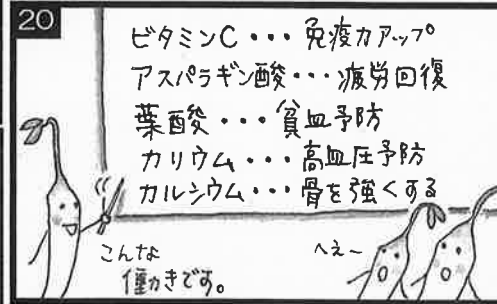 20
ビタミンC・・・免疫力アップ
アスパラギン酸・・・疲労回復
葉酸・・・貧血予防
カリウム・・・高血圧予防
カルシウム・・・骨を強くする
こんな
働きです。
へえ〜